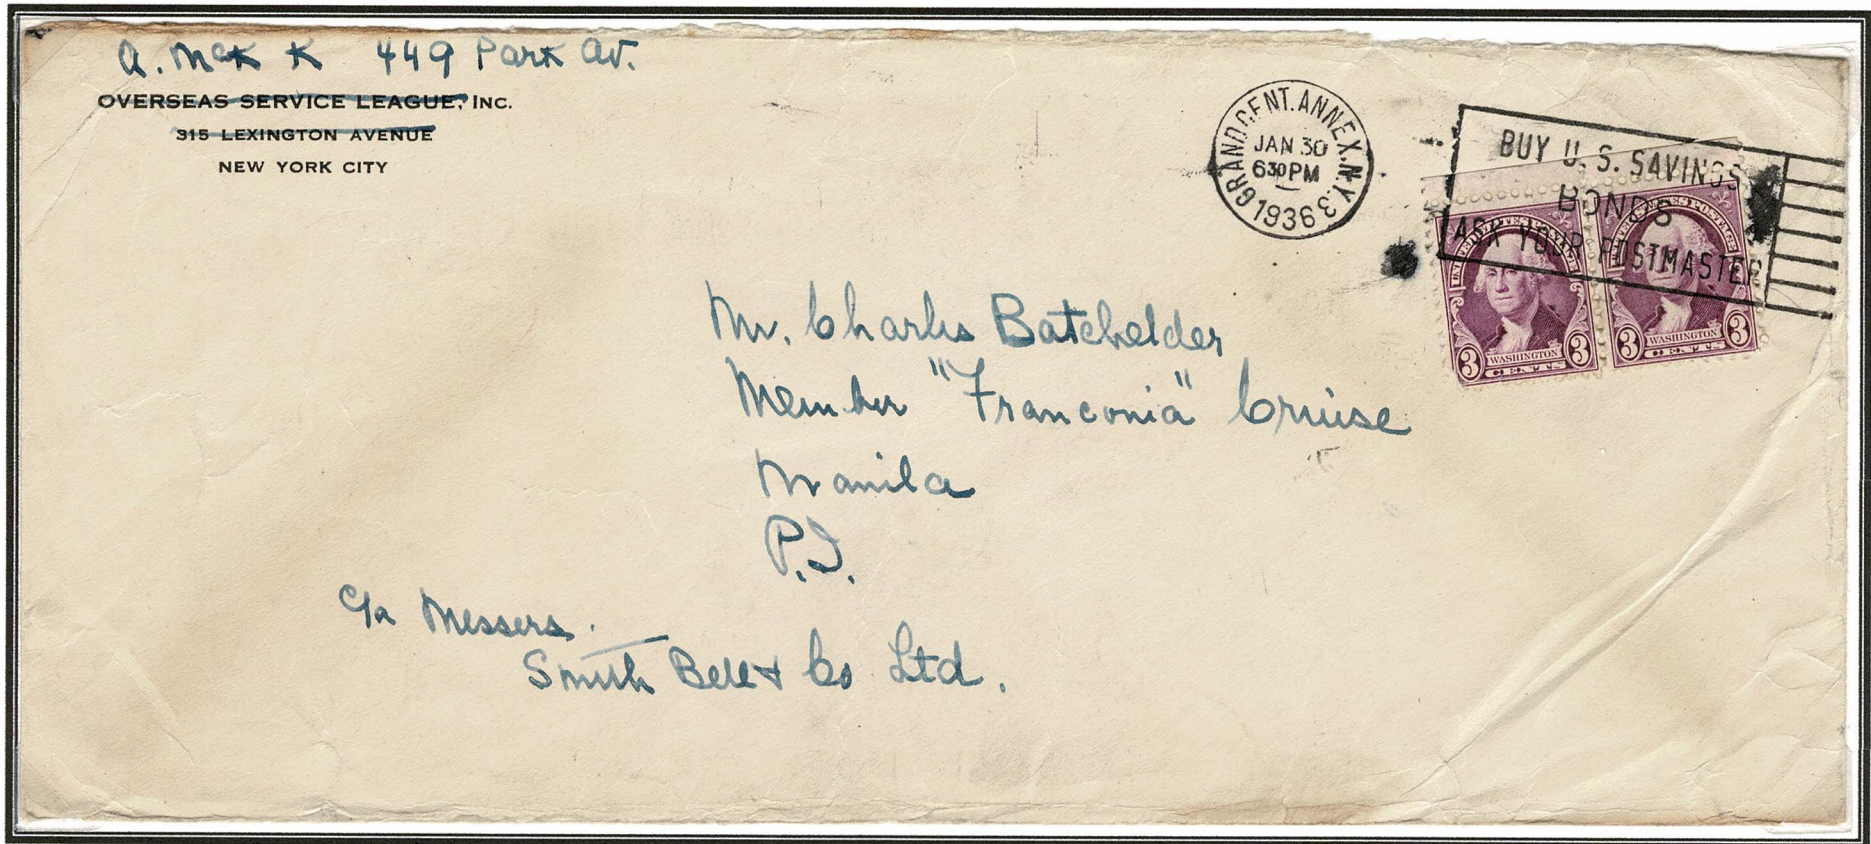 A. McK K 449 Park Av.
OVERSEAS SERVICE LEAGUE, INC.
315 LEXINGTON AVENUE
NEW YORK CITY
GRAND CENT. ANNEX. N.Y. 3
JAN 30
630 PM
1936
BUY U. S. SAVINGS
BONDS
ASK YOUR POSTMASTER
UNITED STATES POSTAGE
3 WASHINGTON 3
CENTS
UNITED STATES POSTAGE
3 WASHINGTON 3
CENTS
Mr. Charles Batchelder
Member "Franconia" Cruise
Manila
P.I.
c/o Messers.
Smith Bell & Co Ltd.